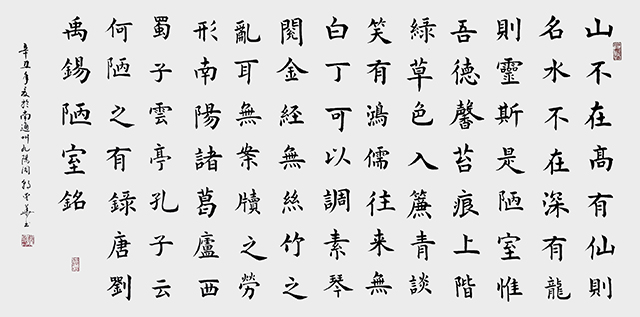 山不在高有仙則
名水不在深有龍
則靈斯是陋室惟
吾德馨苔痕上階
綠草色入簾青談
笑有鴻儒往來無
白丁可以調素琴
閱金經無絲竹之
亂耳無案牘之勞
形南陽諸葛廬西
蜀子雲亭孔子云
何陋之有錄唐劉
禹錫陋室銘
辛丑年